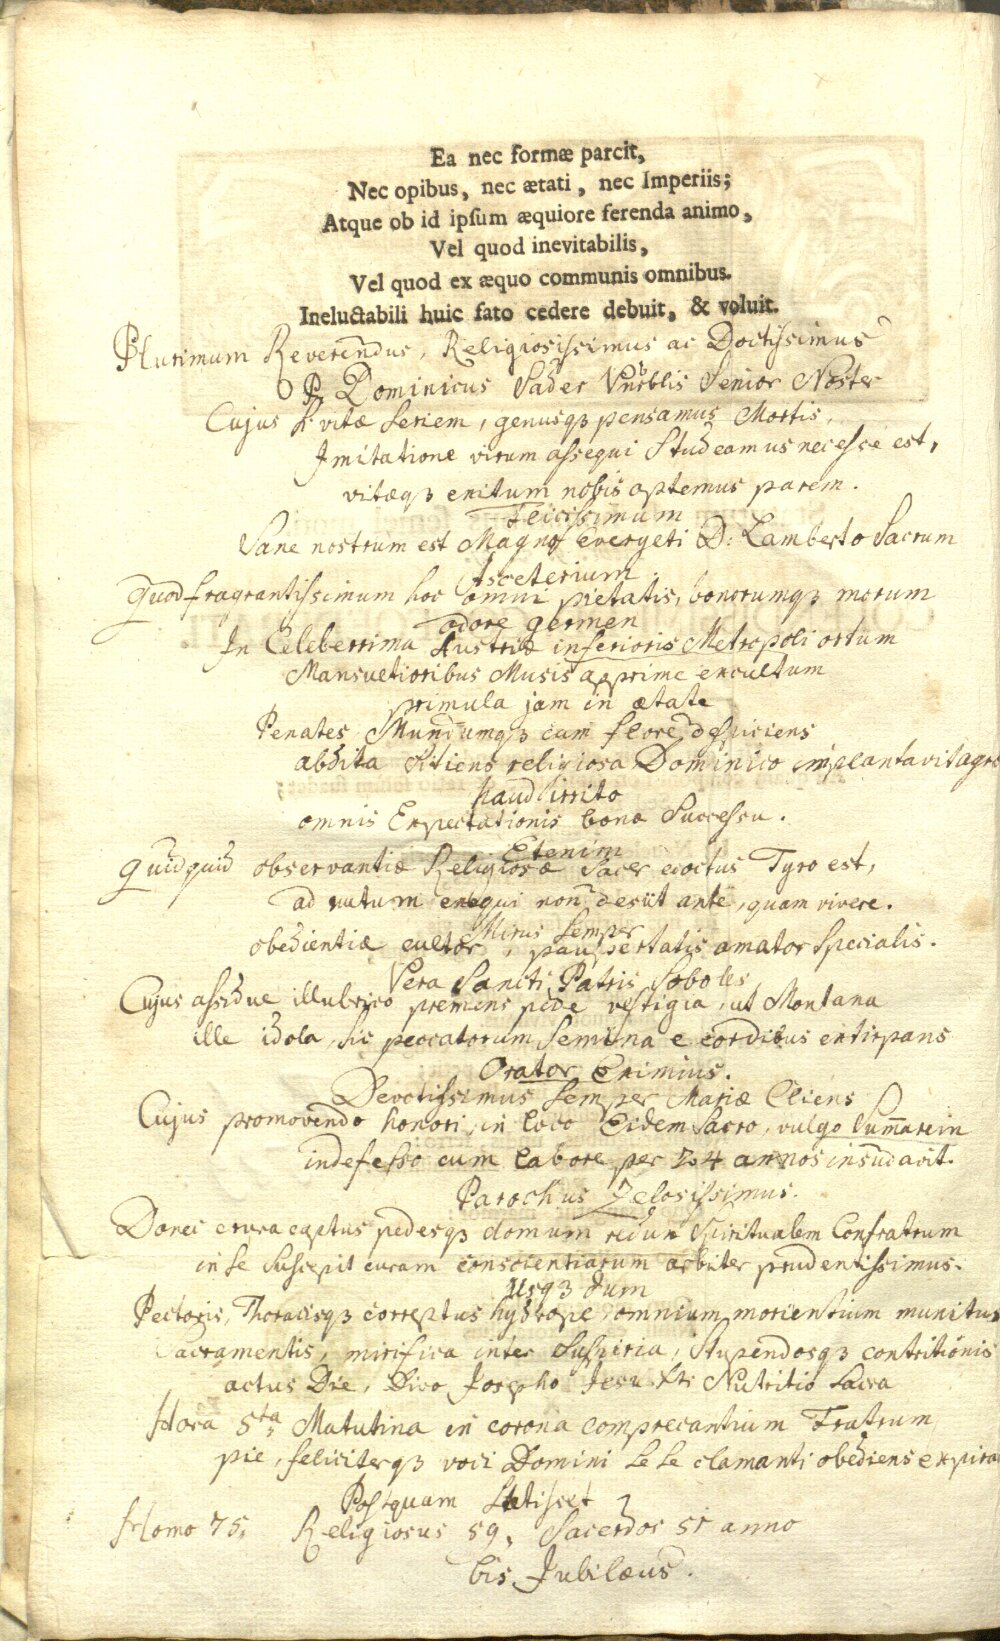 Ea nec formæ parcit,
Nec opibus, nec ætati, nec Imperiis;
Atque ob id ipſum æquiore ferenda animo,
Vel quod inevitabilis,
Vel quod ex æquo communis omnibus.
Ineluctabili huic fato cedere debuit, & voluit.
Plurimum Reverendus, Religiosissimus ac Doctissimus
P. Dominicus Senior Noster
Cujus si vitæ seriem, genusqꝫ pensamus Mortis,
Imitatione virum assequi Studeamus necesse est,
vitæqꝫ exitum nobis optemus parem.
Felicissimum
Sane nostrum est Magni Evergeti D: Lamberto Sacrum
Asceterium
Quod fragrantissimum hoc omni pietatis, bonorumqꝫ morum
odore germen
In Celeberrima Austriæ inferioris Metropoli ortum
Mansuetioribus Musis apprime excultum
primula jam in ætate
Penates Mundumqꝫ cum flore despiciens
abdita sitiens religiosa Dominico implantavit agro
haud irrito
omnis Expectationis bonæ Successu.
Etenim
Quidquid observantiæ Religiosæ Sacer edoctus Tyro est,
ad nutum exequi non desiit ante, quam vivere.
Mirus Semper
obedientiæ cultor, paupertatis amator Specialis.
Vera Sancti Patris Soboles
Cujus assidue illubrico premens pede vestigia, ut Montana
ille idola, sic peccatorum Semina e cordibus extirpans
Orator Eximius.
Devotissimus Semper Mariæ Cliens
Cujus promovendo honori, in loco Eidem Sacro, vulgo
indefesso cum labore per 24 annos insudavit.
Parochus Zelosissimus.
Donec crura captus pedesqꝫ domum redux Spiritualem Confratrum
in se Suscepit curam conscientiarum arbiter prudentissimus.
Usqꝫ dum
Pectoris, Thoracisqꝫ correptus hydrope omnium morientium munitus
Sacramentis, mirifica inter Suspiria, Stupendosqꝫ contritionis
actus Die, Divo Josepho Jesu Nutritio Sacra
Hora 5ta Matutina in corona comprecantium Fratrum
pie, feliciterqꝫ voci Domini Se Se clamanti obediens
Postquam Stetisset
Homo 75, Religiosus 59, Sacerdos 51 anno
bis Jubilæus.